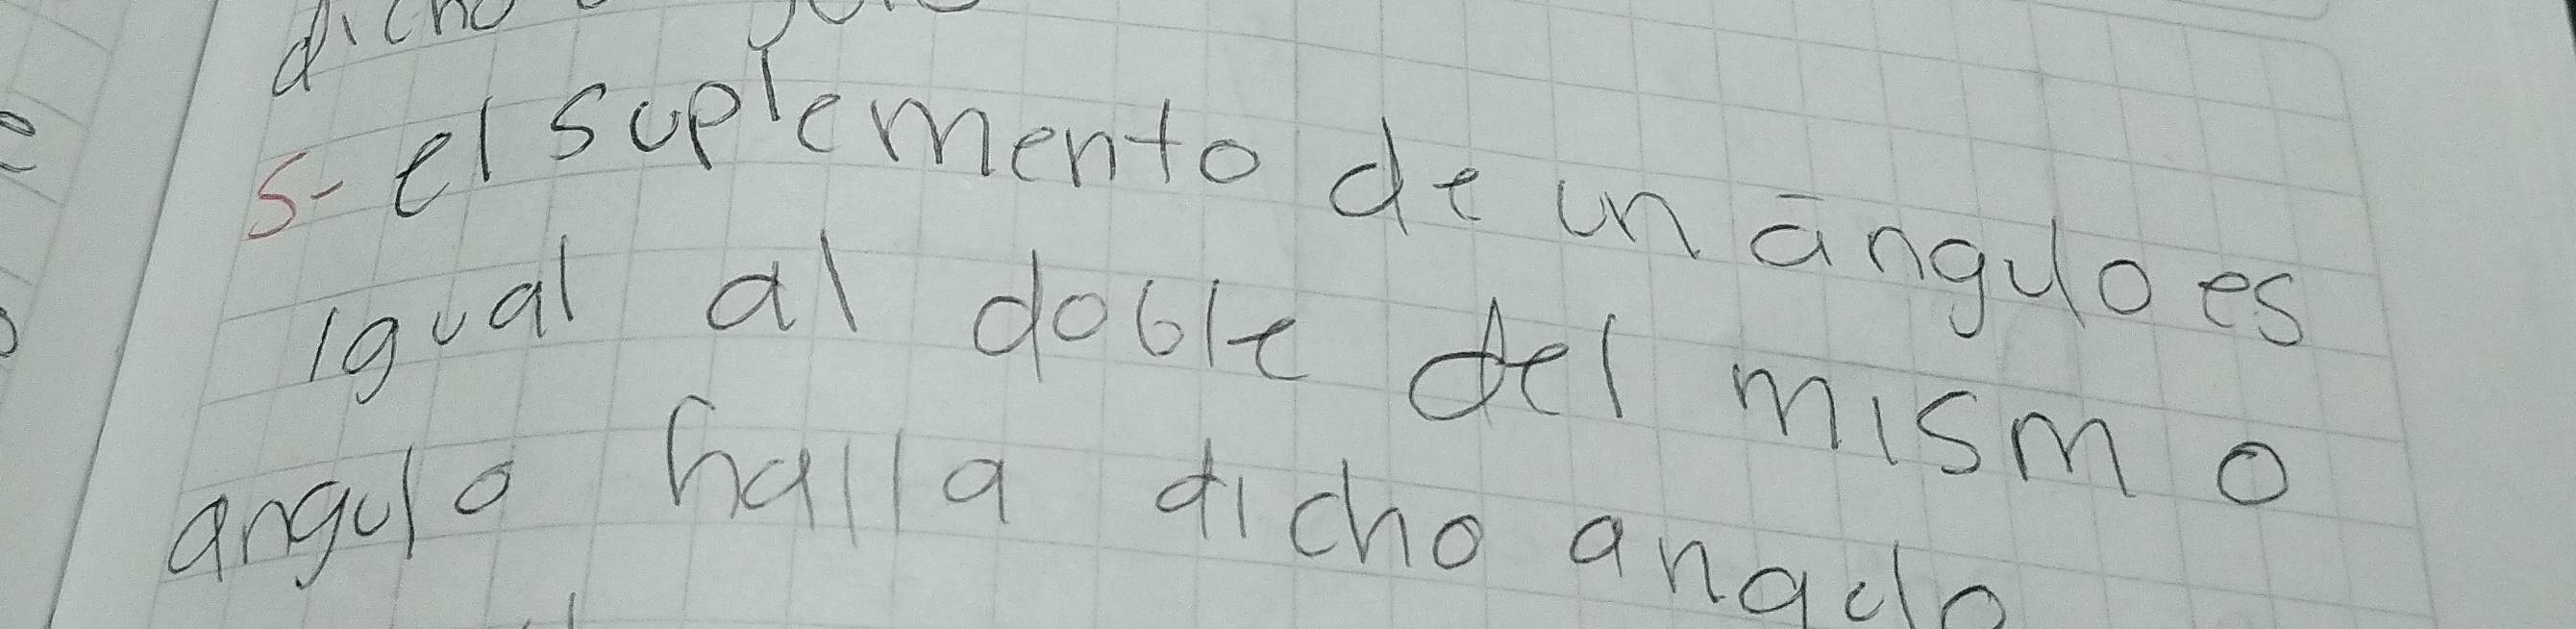 dicho
5- el suplemento de un ángulo es
igual al doble del mismo
angulo halla dicho angulo